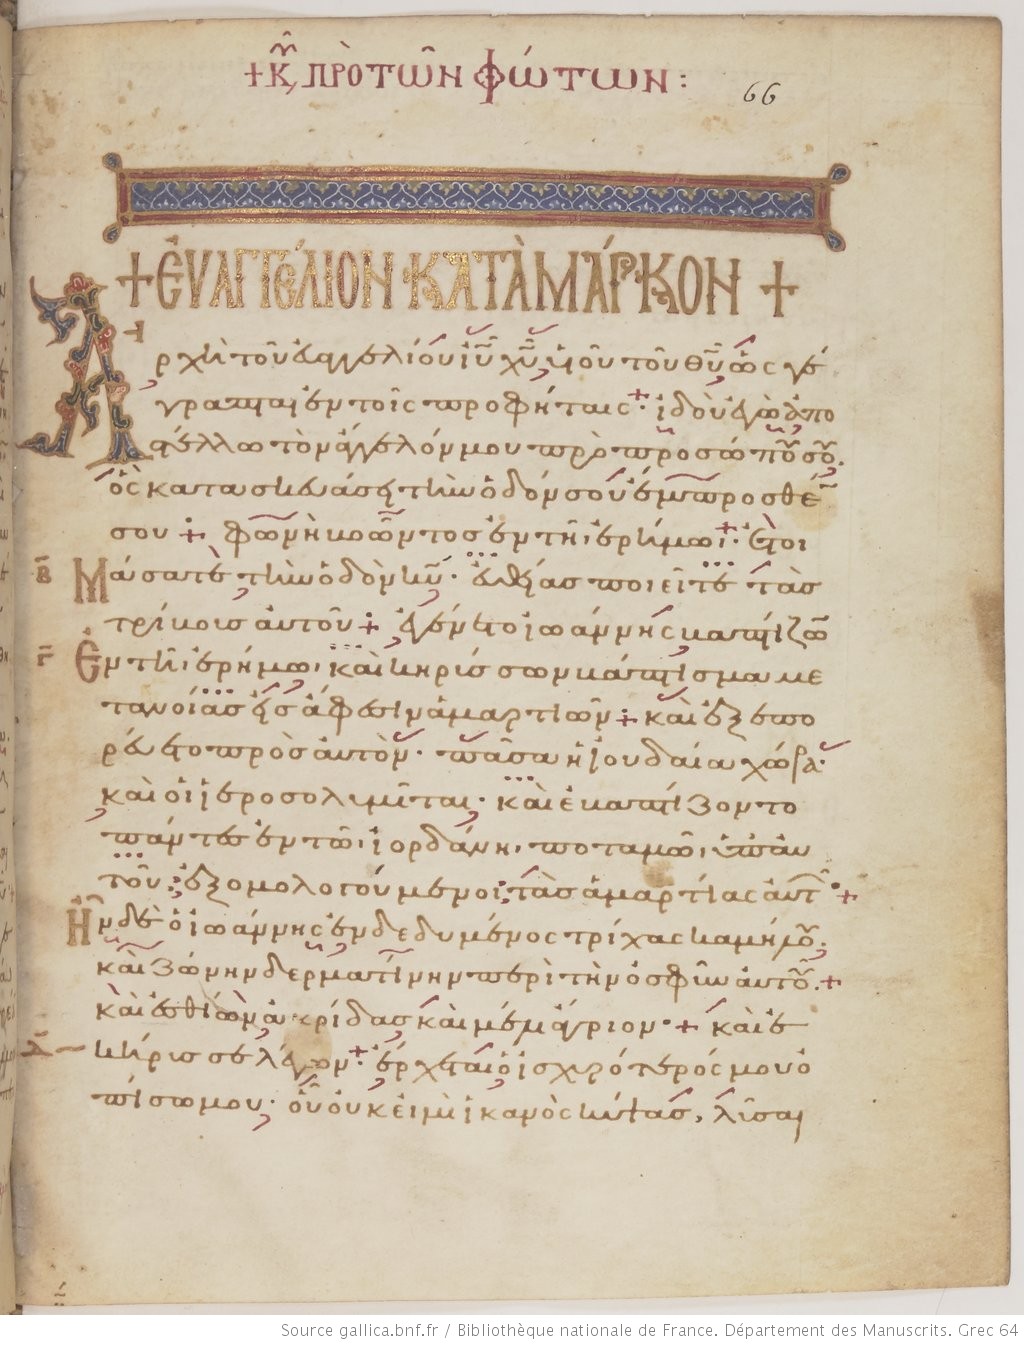 + Κυ πρὸ τῶν φώτων :
66
+ ΕΥΑΓΓΕΛΙΟΝ ΚΑΤΑ ΜΑΡΚΟΝ +
Αρχὴ τοῦ εὐαγγελίου ιυ χυ υἱοῦ τοῦ θυ ὡς γέ
γραπται ἐν τοῖς προφήταις · ἰδοὺ ἐγὼ ἀπο
στέλλω τὸν ἄγγελόν μου πρὸ προσώπου σου.
ὃς κατασκευάσει τὴν ὁδόν σου ἔμπροσθέν
σου + φωνὴ βοῶντος ἐν τῆ ἐρήμωι · Ἑτοι
Β Μάσατε τὴν ὁδὸν κυ · εὐθείας ποιεῖτε τὰς
τρίβους αὐτοῦ + ἐγένετο ἰωάννης βαπτίζων
Γ Εν τῆ ἐρήμω · καὶ κηρύσσων βάπτισμα με
τανοίας εἰς ἄφεσιν ἁμαρτιῶν + καὶ ἐξεπο
ρεύετο πρὸς αὐτὸν · πᾶσα ἡ ἰουδαία χώρα ·
καὶ οἱ ἱεροσολυμῖται · καὶ ἐβαπτίζοντο
πάντες ἐν τῶ ἰορδάνη ποταμῶ ὑπ αὐ
τοῦ : ἐξομολογούμενοι : τὰς ἁμαρτίας αὐτ +
Ην δὲ ὁ ἰωάννης ἐνδεδυμένος τρίχας καμήλου
καὶ ζώνην δερματίνην περὶ τὴν ὀσφὺν αὐτοῦ · +
καὶ ἐσθίων ἀκρίδας καὶ μέλι ἄγριον · + καὶ ἐ
Δ κήρυσσε λέγων · ἔρχεται ὁ ἰσχυρότερός μου ὀ
πίσω μου · οὗ οὐκ εἰμὶ ἱκανὸς κύψας, λῦσαι
Source gallica.bnf.fr / Bibliothèque nationale de France. Département des Manuscrits. Grec 64